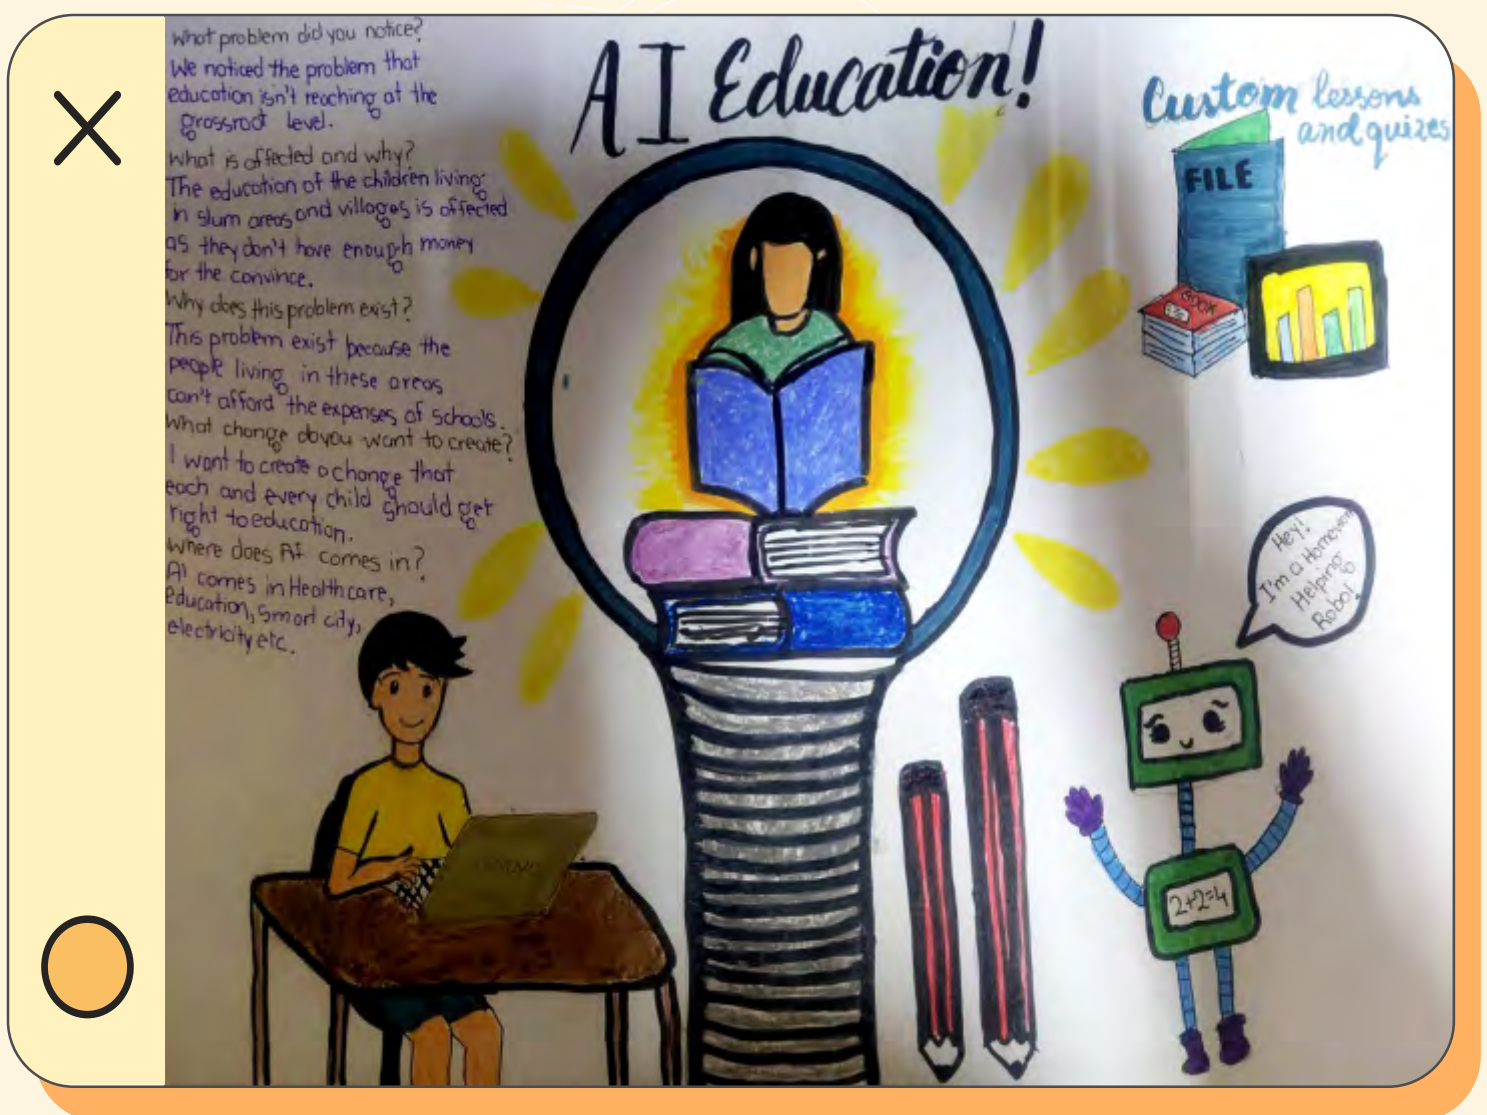 What problem did you notice?
We noticed the problem that
education isn't reaching at the
grassroot level.
What is affected and why?
The education of the children living
in slum areas and villages is affected
as they don't have enough money
for the convince.
Why does this problem exist?
This problem exist because the
people living in these areas
can't afford the expenses of schools.
What change do you want to create?
I want to create a change that
each and every child should get
right to education.
Where does AI comes in?
AI comes in Healthcare,
education, smart city,
electricity etc.
AI Education!
Custom lessons
and quizes
FILE
BOOK
Hey!
I'm a Homework
Helping
Robot.
2+2=4